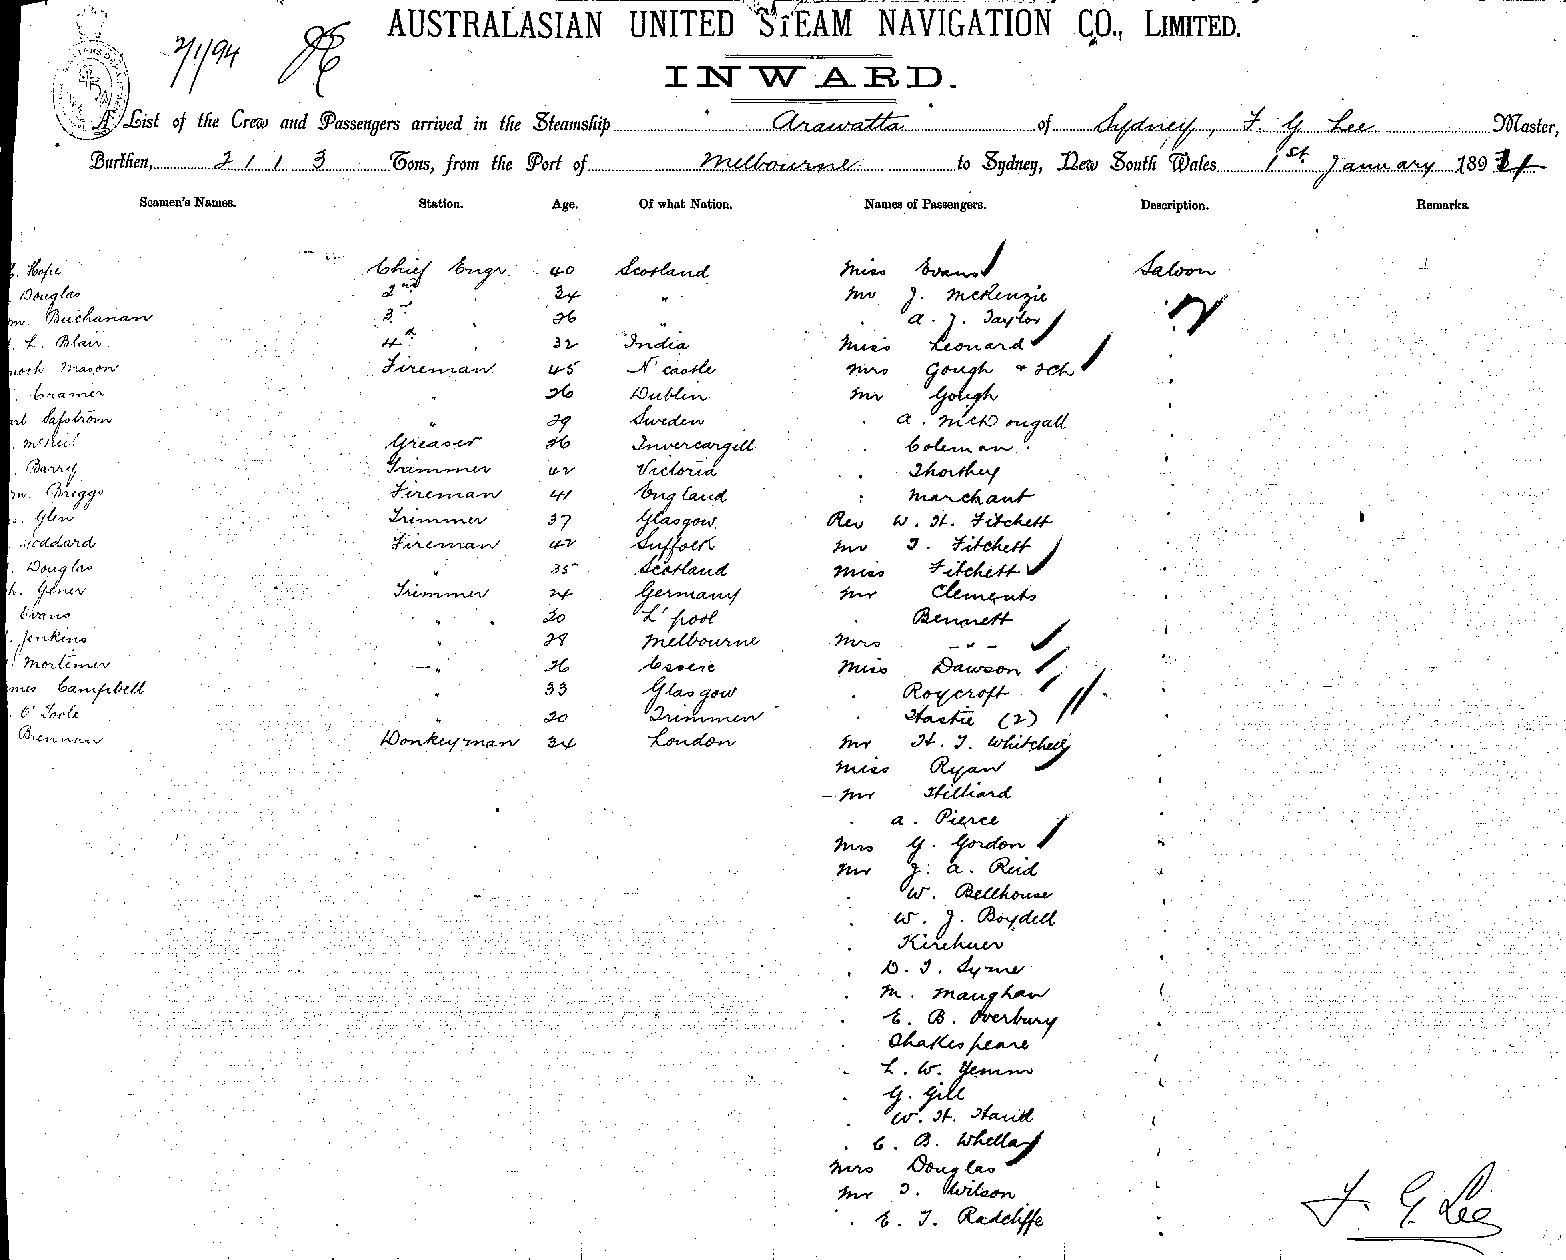 AUSTRALASIAN UNITED STEAM NAVIGATION CO., LIMITED.
2/1/94
INWARD.
A List of the Crew and Passengers arrived in the Steamship Arawatta of Sydney, F G Lee Master,
Burthen, 2113 Tons, from the Port of Melbourne to Sydney, New South Wales 1st January 1894
Seamen's Names. Station. Age. Of what Nation. Names of Passengers. Description. Remarks.
Hope Chief Engr. 40 Scotland Miss Evans Saloon
Douglas 2nd 34 " Mr J. McKenzie
Buchanan 3rd 26 " A. J. Taylor
L. Blair 4th 32 India Miss Leonard
Mason Fireman 45 N'castle Mrs Gough + 2ch
Cramer " 26 Dublin Mr Gough
Safström " 29 Sweden A. McDougall
McNeil Greaser 26 Invercargill Coleman
Barry Trimmer 42 Victoria
Briggs Fireman 41 England Marchant
Glen Trimmer 37 Glasgow Rev W. H. Fitchett
Goddard Fireman 42 Suffolk Mr T. Fitchett
Douglas " 35 Scotland Miss Fitchett
Trimmer 24 Germany Mr Clements
Evans " 30 L'pool Bennett
Jenkins " 28 Melbourne Mrs - " -
Mortimer " 26 Essex Miss Dawson
Campbell " 33 Glasgow Roycroft
O'Toole " 20 Hastie (2)
Brennan Donkeyman 34 London Mr H. T.
Miss Ryan
Mr Hilliard
A. Pierce
Mrs G. Gordon
Mr J. A. Reid
W. Bellhouse
W. J. Boydell
Kirchner
D. T. Syme
M. Maughan
E. B. Overbury
Shakespeare
L. W. Gemm
G. Gill
W. H.
C. B.
Mrs Douglas
Mr T. Wilson
E. T. Radcliffe
F. G. Lee